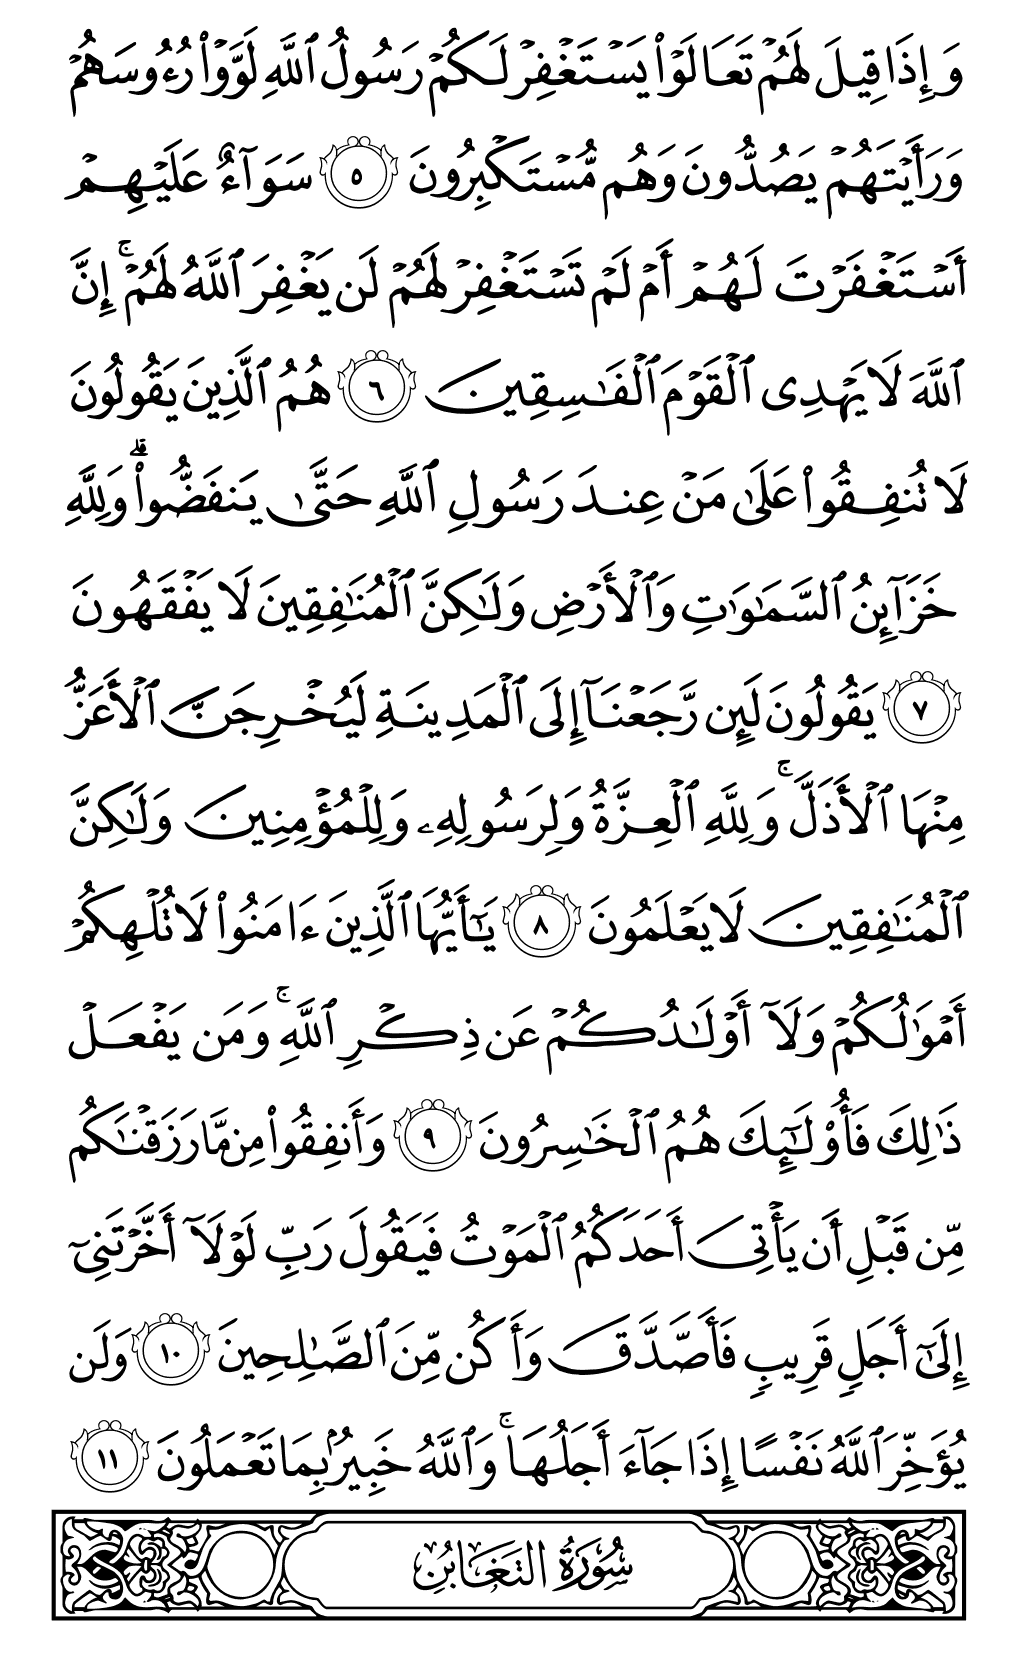 وَإِذَا قِيلَ لَهُمۡ تَعَالَوۡاْ يَسۡتَغۡفِرۡ لَكُمۡ رَسُولُ ٱللَّهِ لَوَّوۡاْ رُءُوسَهُمۡ
وَرَأَيۡتَهُمۡ يَصُدُّونَ وَهُم مُّسۡتَكۡبِرُونَ ٥ سَوَآءٌ عَلَيۡهِمۡ
أَسۡتَغۡفَرۡتَ لَهُمۡ أَمۡ لَمۡ تَسۡتَغۡفِرۡ لَهُمۡ لَن يَغۡفِرَ ٱللَّهُ لَهُمۡۚ إِنَّ
ٱللَّهَ لَا يَهۡدِي ٱلۡقَوۡمَ ٱلۡفَٰسِقِينَ ٦ هُمُ ٱلَّذِينَ يَقُولُونَ
لَا تُنفِقُواْ عَلَىٰ مَنۡ عِندَ رَسُولِ ٱللَّهِ حَتَّىٰ يَنفَضُّواْۗ وَلِلَّهِ
خَزَآئِنُ ٱلسَّمَٰوَٰتِ وَٱلۡأَرۡضِ وَلَٰكِنَّ ٱلۡمُنَٰفِقِينَ لَا يَفۡقَهُونَ
٧ يَقُولُونَ لَئِن رَّجَعۡنَآ إِلَى ٱلۡمَدِينَةِ لَيُخۡرِجَنَّ ٱلۡأَعَزُّ
مِنۡهَا ٱلۡأَذَلَّۚ وَلِلَّهِ ٱلۡعِزَّةُ وَلِرَسُولِهِۦ وَلِلۡمُؤۡمِنِينَ وَلَٰكِنَّ
ٱلۡمُنَٰفِقِينَ لَا يَعۡلَمُونَ ٨ يَٰٓأَيُّهَا ٱلَّذِينَ ءَامَنُواْ لَا تُلۡهِكُمۡ
أَمۡوَٰلُكُمۡ وَلَآ أَوۡلَٰدُكُمۡ عَن ذِكۡرِ ٱللَّهِۚ وَمَن يَفۡعَلۡ
ذَٰلِكَ فَأُوْلَٰٓئِكَ هُمُ ٱلۡخَٰسِرُونَ ٩ وَأَنفِقُواْ مِن مَّا رَزَقۡنَٰكُم
مِّن قَبۡلِ أَن يَأۡتِيَ أَحَدَكُمُ ٱلۡمَوۡتُ فَيَقُولَ رَبِّ لَوۡلَآ أَخَّرۡتَنِيٓ
إِلَىٰٓ أَجَلٖ قَرِيبٖ فَأَصَّدَّقَ وَأَكُن مِّنَ ٱلصَّٰلِحِينَ ١٠ وَلَن
يُؤَخِّرَ ٱللَّهُ نَفۡسًا إِذَا جَآءَ أَجَلُهَاۚ وَٱللَّهُ خَبِيرُۢ بِمَا تَعۡمَلُونَ ١١
سُورَةُ التَّغَابُنِ